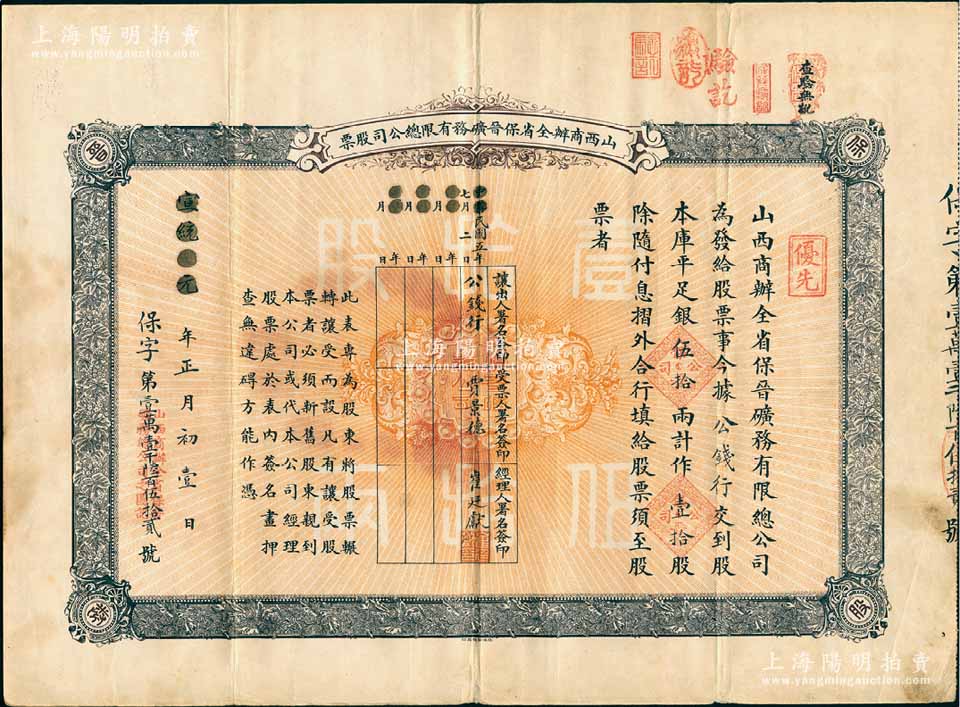 上海陽明拍賣
www.yangmingauction.com
上海陽明拍賣
www.yangmingauction.com
驗訖
查驗無訛
山西商辦全省保晉礦務有限總公司股票
保
晉
股
優先
山西商辦全省保晉礦務有限總公司
為發給股票事今據 公錢行交到股
本庫平足銀伍拾兩計作壹拾股
除隨付息摺外合行填給股票須至股
票者
壹拾股
伍拾兩
中華民國五年
七月二日
年 月 日
年 月 日
年 月 日
讓出人署名簽印
受票人署名簽印
經理人署名簽印
公錢行
賈景德
崔廷獻
此表專為股東將股票輾
轉讓受而設凡有讓受股
票者必須新舊股東親到
本公司或代本公司經理
股票處於表內簽名畫押
查無違碍方能作憑
宣統元年正月初壹日
保字第壹萬壹千陸百伍拾貳號
上海陽明拍賣
www.yangmingauction.com
上海陽明拍賣
www.yangmingauction.com